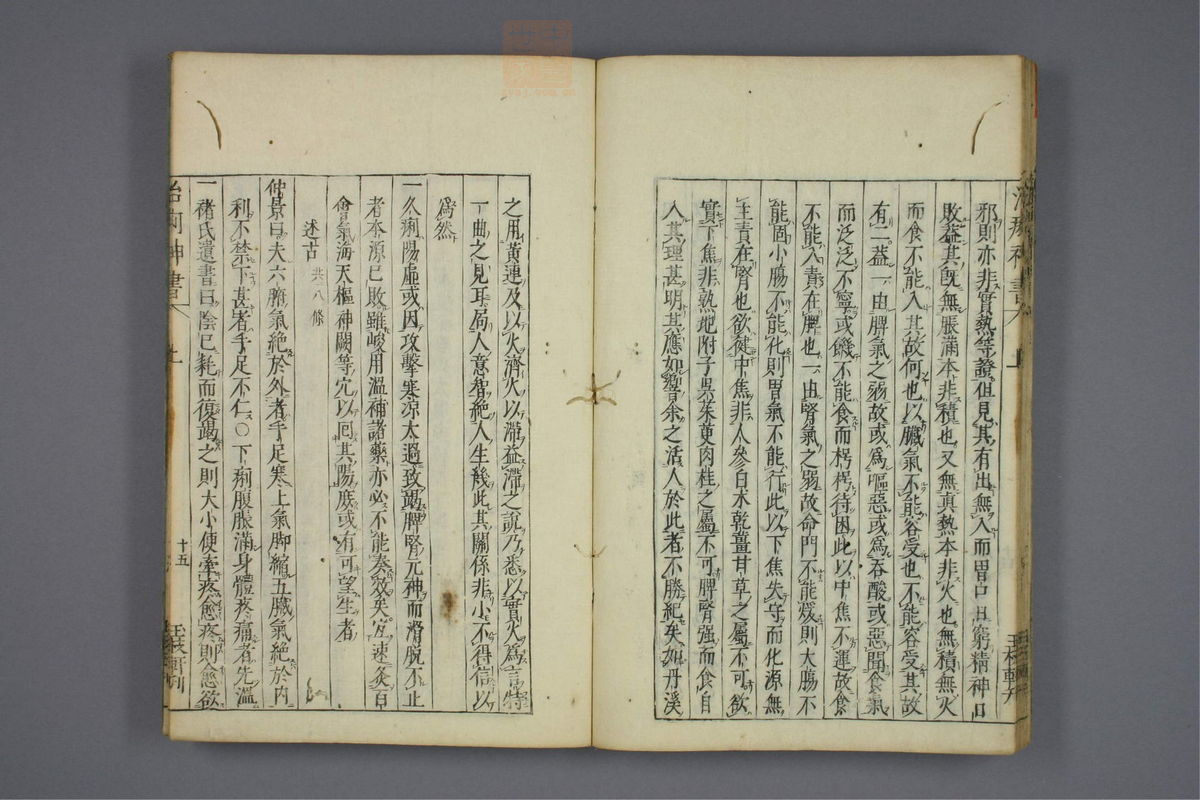 邪則亦非實熱等證但見其有出無入而胃口日窮精神日
敗蓋其旣無脹滿本非積也又無真熱本非火也無積無火
而食不能入其故何也以臟氣不能容受也不能容受其故
有二蓋一由脾氣之弱故或爲嘔惡或爲吞酸或惡聞食氣
而泛泛不寧或饑不能食而枵枵待困此以中焦不運故食
不能入責在脾也一由腎氣之弱故命門不能煖則大腸不
能固小腸不能化則胃氣不能行此以下焦失守而化源無
主責在腎也欲健中焦非人參白朮乾薑甘草之屬不可欲
實下焦非熟地附子吳茱萸肉桂之屬不可脾腎强而食自
入其理甚明其應如響余之活人於此者不勝紀矣如丹溪
之用黃連及以火濟火以滯益滯之說乃悉以實火爲言特
一曲之見耳局人意智絶人生幾此其關係非小不得信以
爲然
一久痢陽虛或因攻擊寒涼太過致竭脾腎元神而滑脱不止
者本源已敗雖峻用溫補諸藥亦必不能奏效矣宜速灸百
會氣海天樞神闕等穴以囘其陽庶或有可望生者
述古 共八條
仲景曰夫六腑氣絶於外者手足寒上氣脚縮五臟氣絶於内
利不禁下甚者手足不仁○下痢腹脹滿身體疼痛者先溫
一褚氏遺書曰陰已耗而復竭之則大小便牽疼愈疼則愈欲
十五